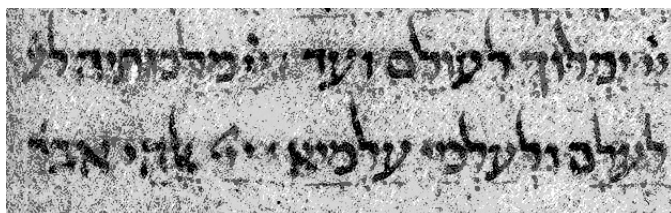 ייי ימלוך לעולם ועד ייי מלכותיה לע
לעלם ולעלמי עלמיא ייי אלהי אבר